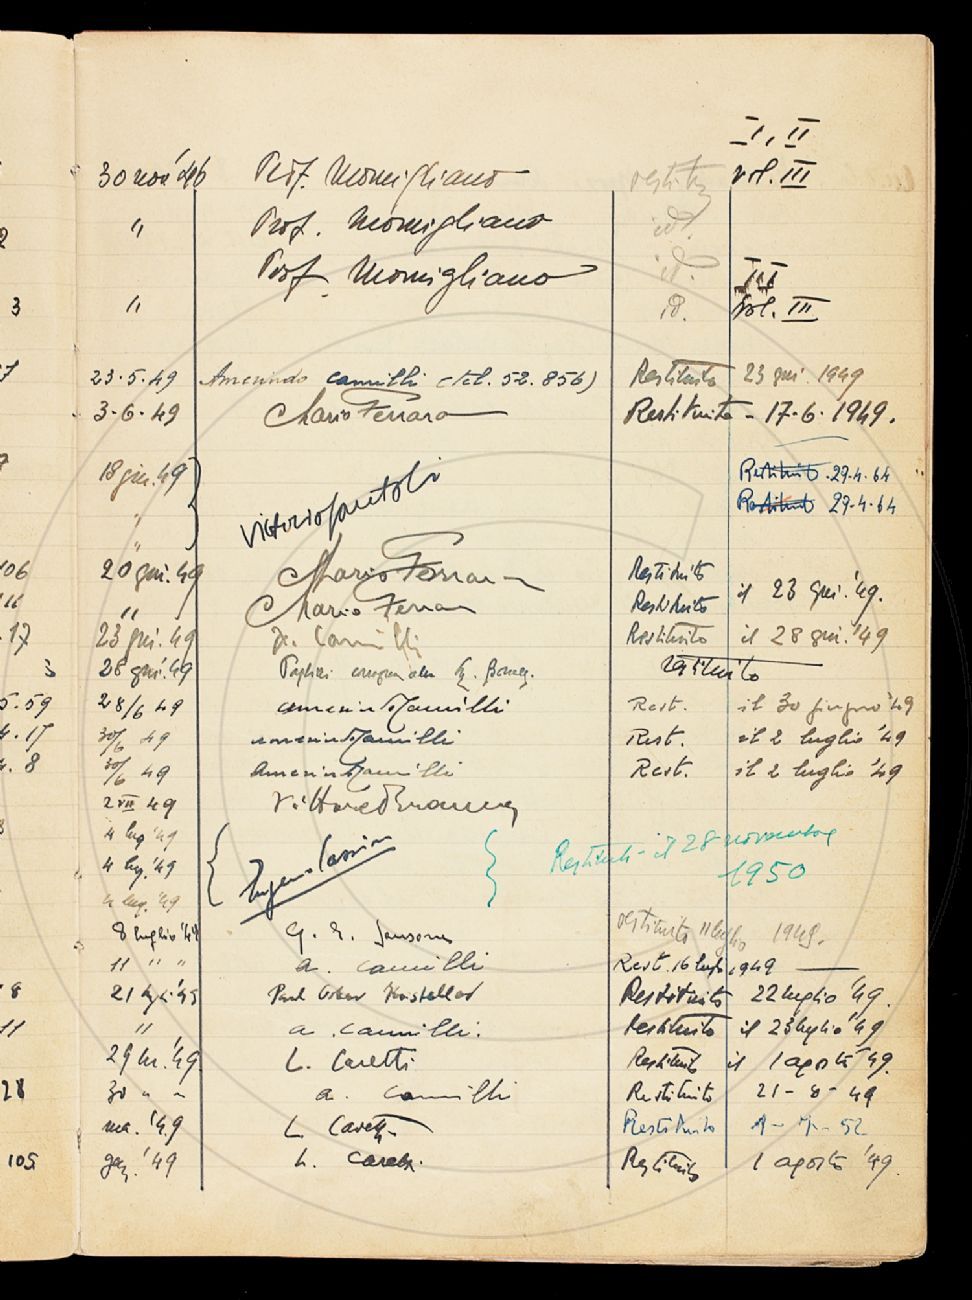 I, II
30 nov '46 Prof. Momigliano restit. vol. III
2 " Prof. Momigliano id.
Prof. Momigliano id. III
3 " id. Vol. III
7 23.5.49 Amerindo Camilli (tel. 52.856) Restituito 23 giu. 1949
3.6.49 Mario Ferrara Restituito - 17.6.1949.
7 18 giu. 49 Restituito 29.4.64
" Vittorio Santoli Restituito 29.4.64
"
106 20 giu. 49 Mario Ferrara Restituito
il 23 giu. '49.
" Mario Ferrara Restituito
17 23 giu. '49 Camilli Restituito il 28 giu. '49
3 28 giu. '49 restituito
5.59 28/6 49 Amerindo Camilli Rest. il 30 giugno '49
4.17 30/6 49 Amerindo Camilli Rest. il 2 luglio '49
8 30/6 49 Amerindo Camilli Rest. il 2 luglio '49
2 VII 49 Vittore Branca
4 lug '49
4 lug. '49 Restituito il 28 novembre
1950
4 lug. '49
8 luglio '49 restituito 11 luglio 1949.
11 " " a. Camilli Rest. 16 luglio 1949
8 21 Paul Oskar Kristeller Restituito 22 luglio '49.
11 " a. Camilli. Restituito il 23 luglio '49
29 '49. L. Caretti Restituito il 1 agosto '49.
28 30 " " a. Camilli Restituito 21-8-49
'49 L. Caretti Restituito 52
105 '49 L. Caretti. Restituito 1 agosto '49.